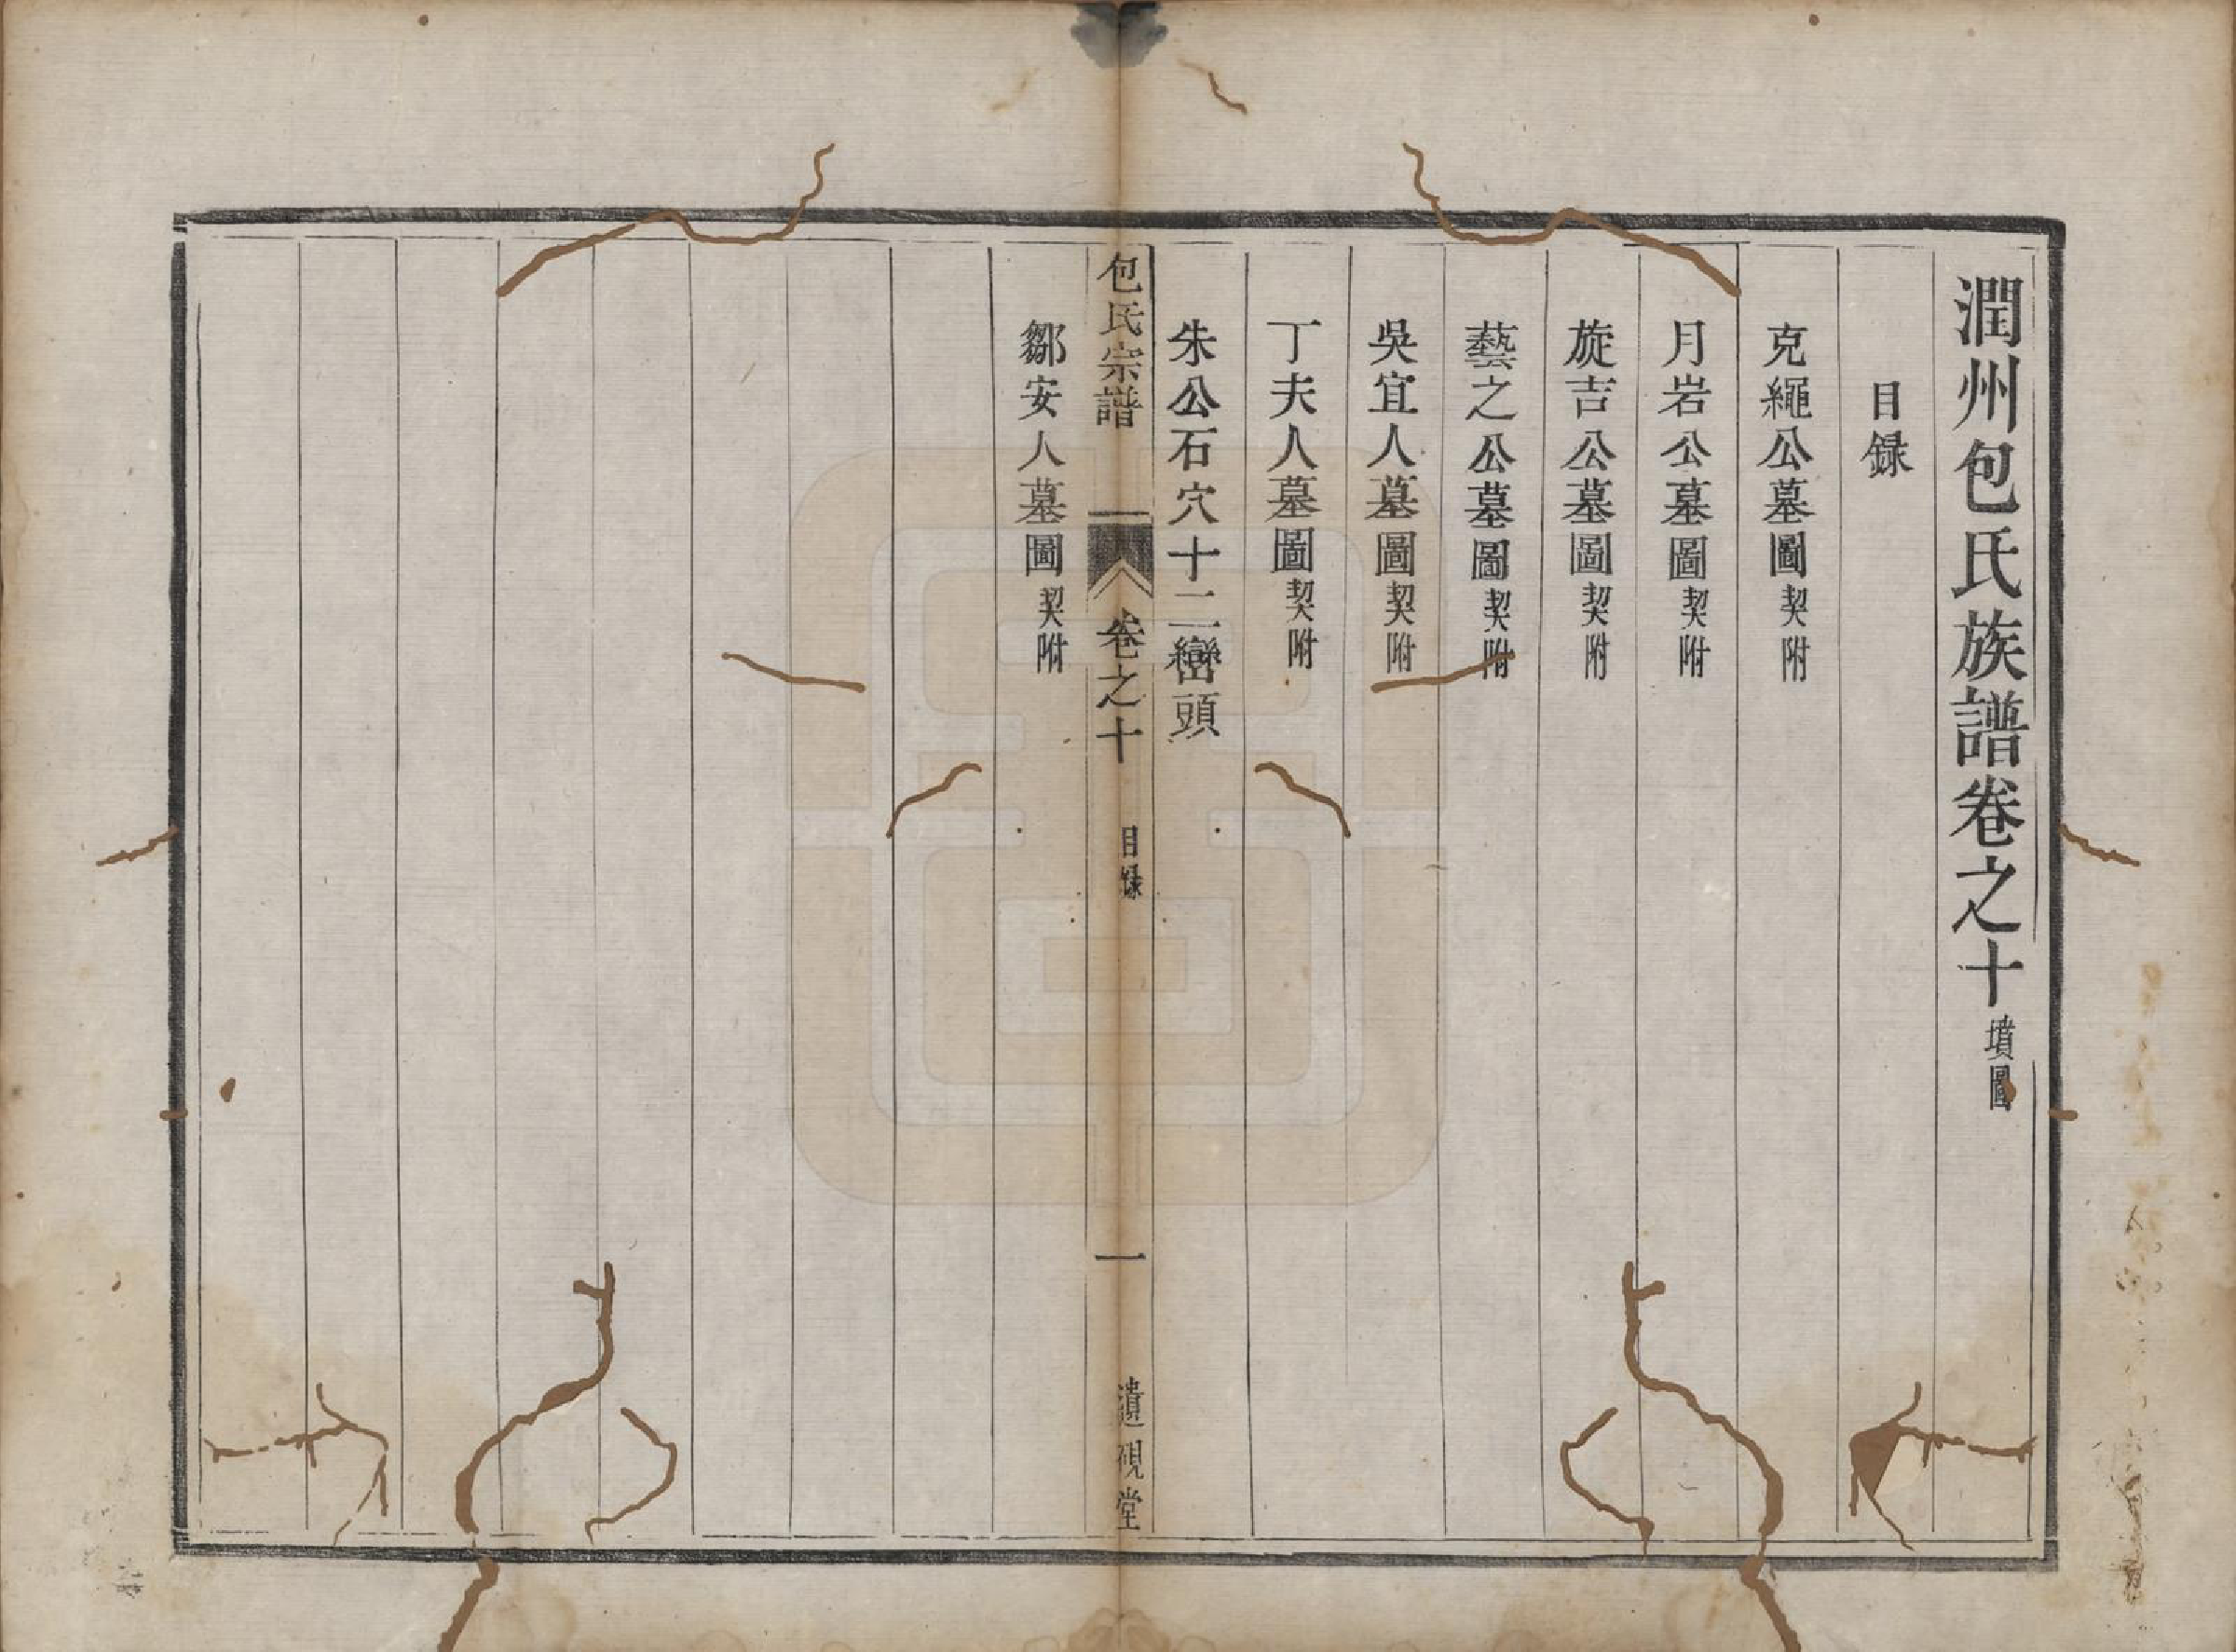 潤州包氏族譜卷之十 墳圖
目録
克繩公墓圖 契附
月岩公墓圖 契附
旋吉公墓圖 契附
藝之公墓圖 契附
吳宜人墓圖 契附
丁夫人墓圖 契附
朱公石穴十二巒頭
包氏宗譜 卷之十 目録 一 遺硯堂
鄒安人墓圖 契附